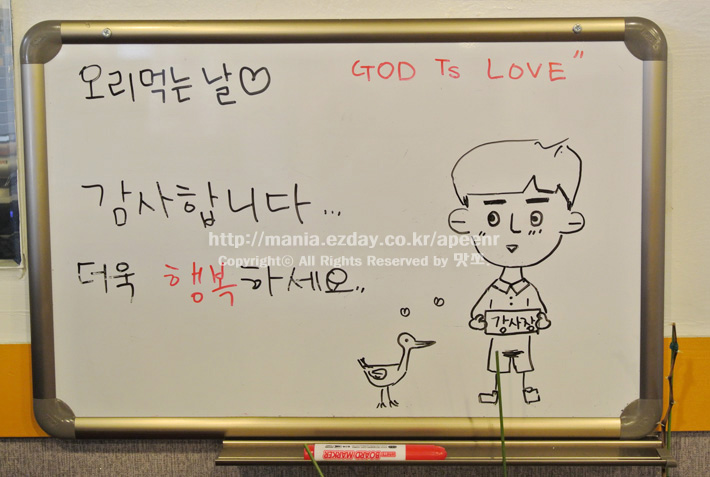 오리먹는날♡
GOD Is LOVE"
감사합니다...
http://mania.ezday.co.kr/apeenr
Copyright© All Rights Reserved by 맛쪼
더욱 행복하세요..
감사장
BOARD MARKER